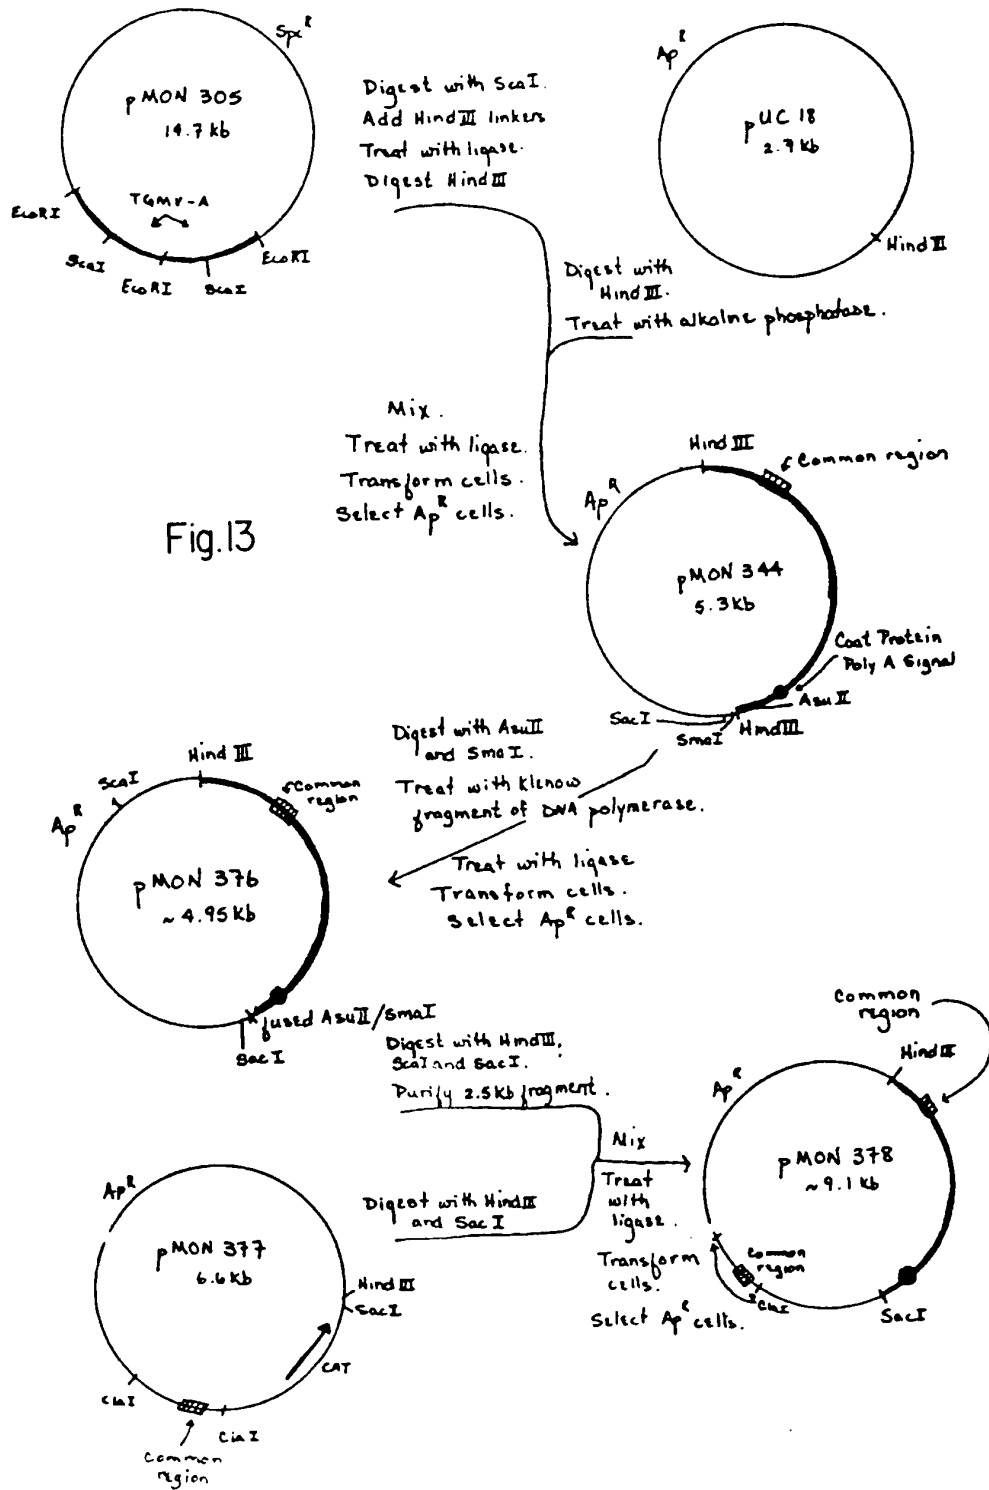 Spc R
pMON 305
14.7 kb
TGMV-A
EcoRI
ScaI
EcoRI
ScaI
EcoRI
Digest with ScaI.
Add Hind III linkers
Treat with ligase.
Digest Hind III
Ap R
pUC 18
2.7 kb
Hind III
Digest with
Hind III.
Treat with alkaline phosphatase.
Mix.
Treat with ligase.
Transform cells.
Select Ap R cells.
Fig.13
Hind III
Common region
Ap R
pMON 344
5.3 kb
Coat Protein
Poly A Signal
Asu II
Hind III
SmaI
SacI
Digest with AsuII
and SmaI.
Treat with Klenow
fragment of DNA polymerase.
Treat with ligase
Transform cells.
Select Ap R cells.
Hind III
ScaI
Common
region
Ap R
pMON 376
~ 4.95 kb
fused AsuII/SmaI
Sac I
Digest with Hind III,
ScaI and SacI.
Purify 2.5 kb fragment.
Ap R
pMON 377
6.6 kb
Hind III
SacI
CAT
ClaI
ClaI
Common
region
Digest with Hind III
and SacI
Mix
Treat
with
ligase.
Transform
cells.
Select Ap R cells.
Common
region
Hind III
Ap R
pMON 378
~ 9.1 kb
Common
region
ClaI
SacI